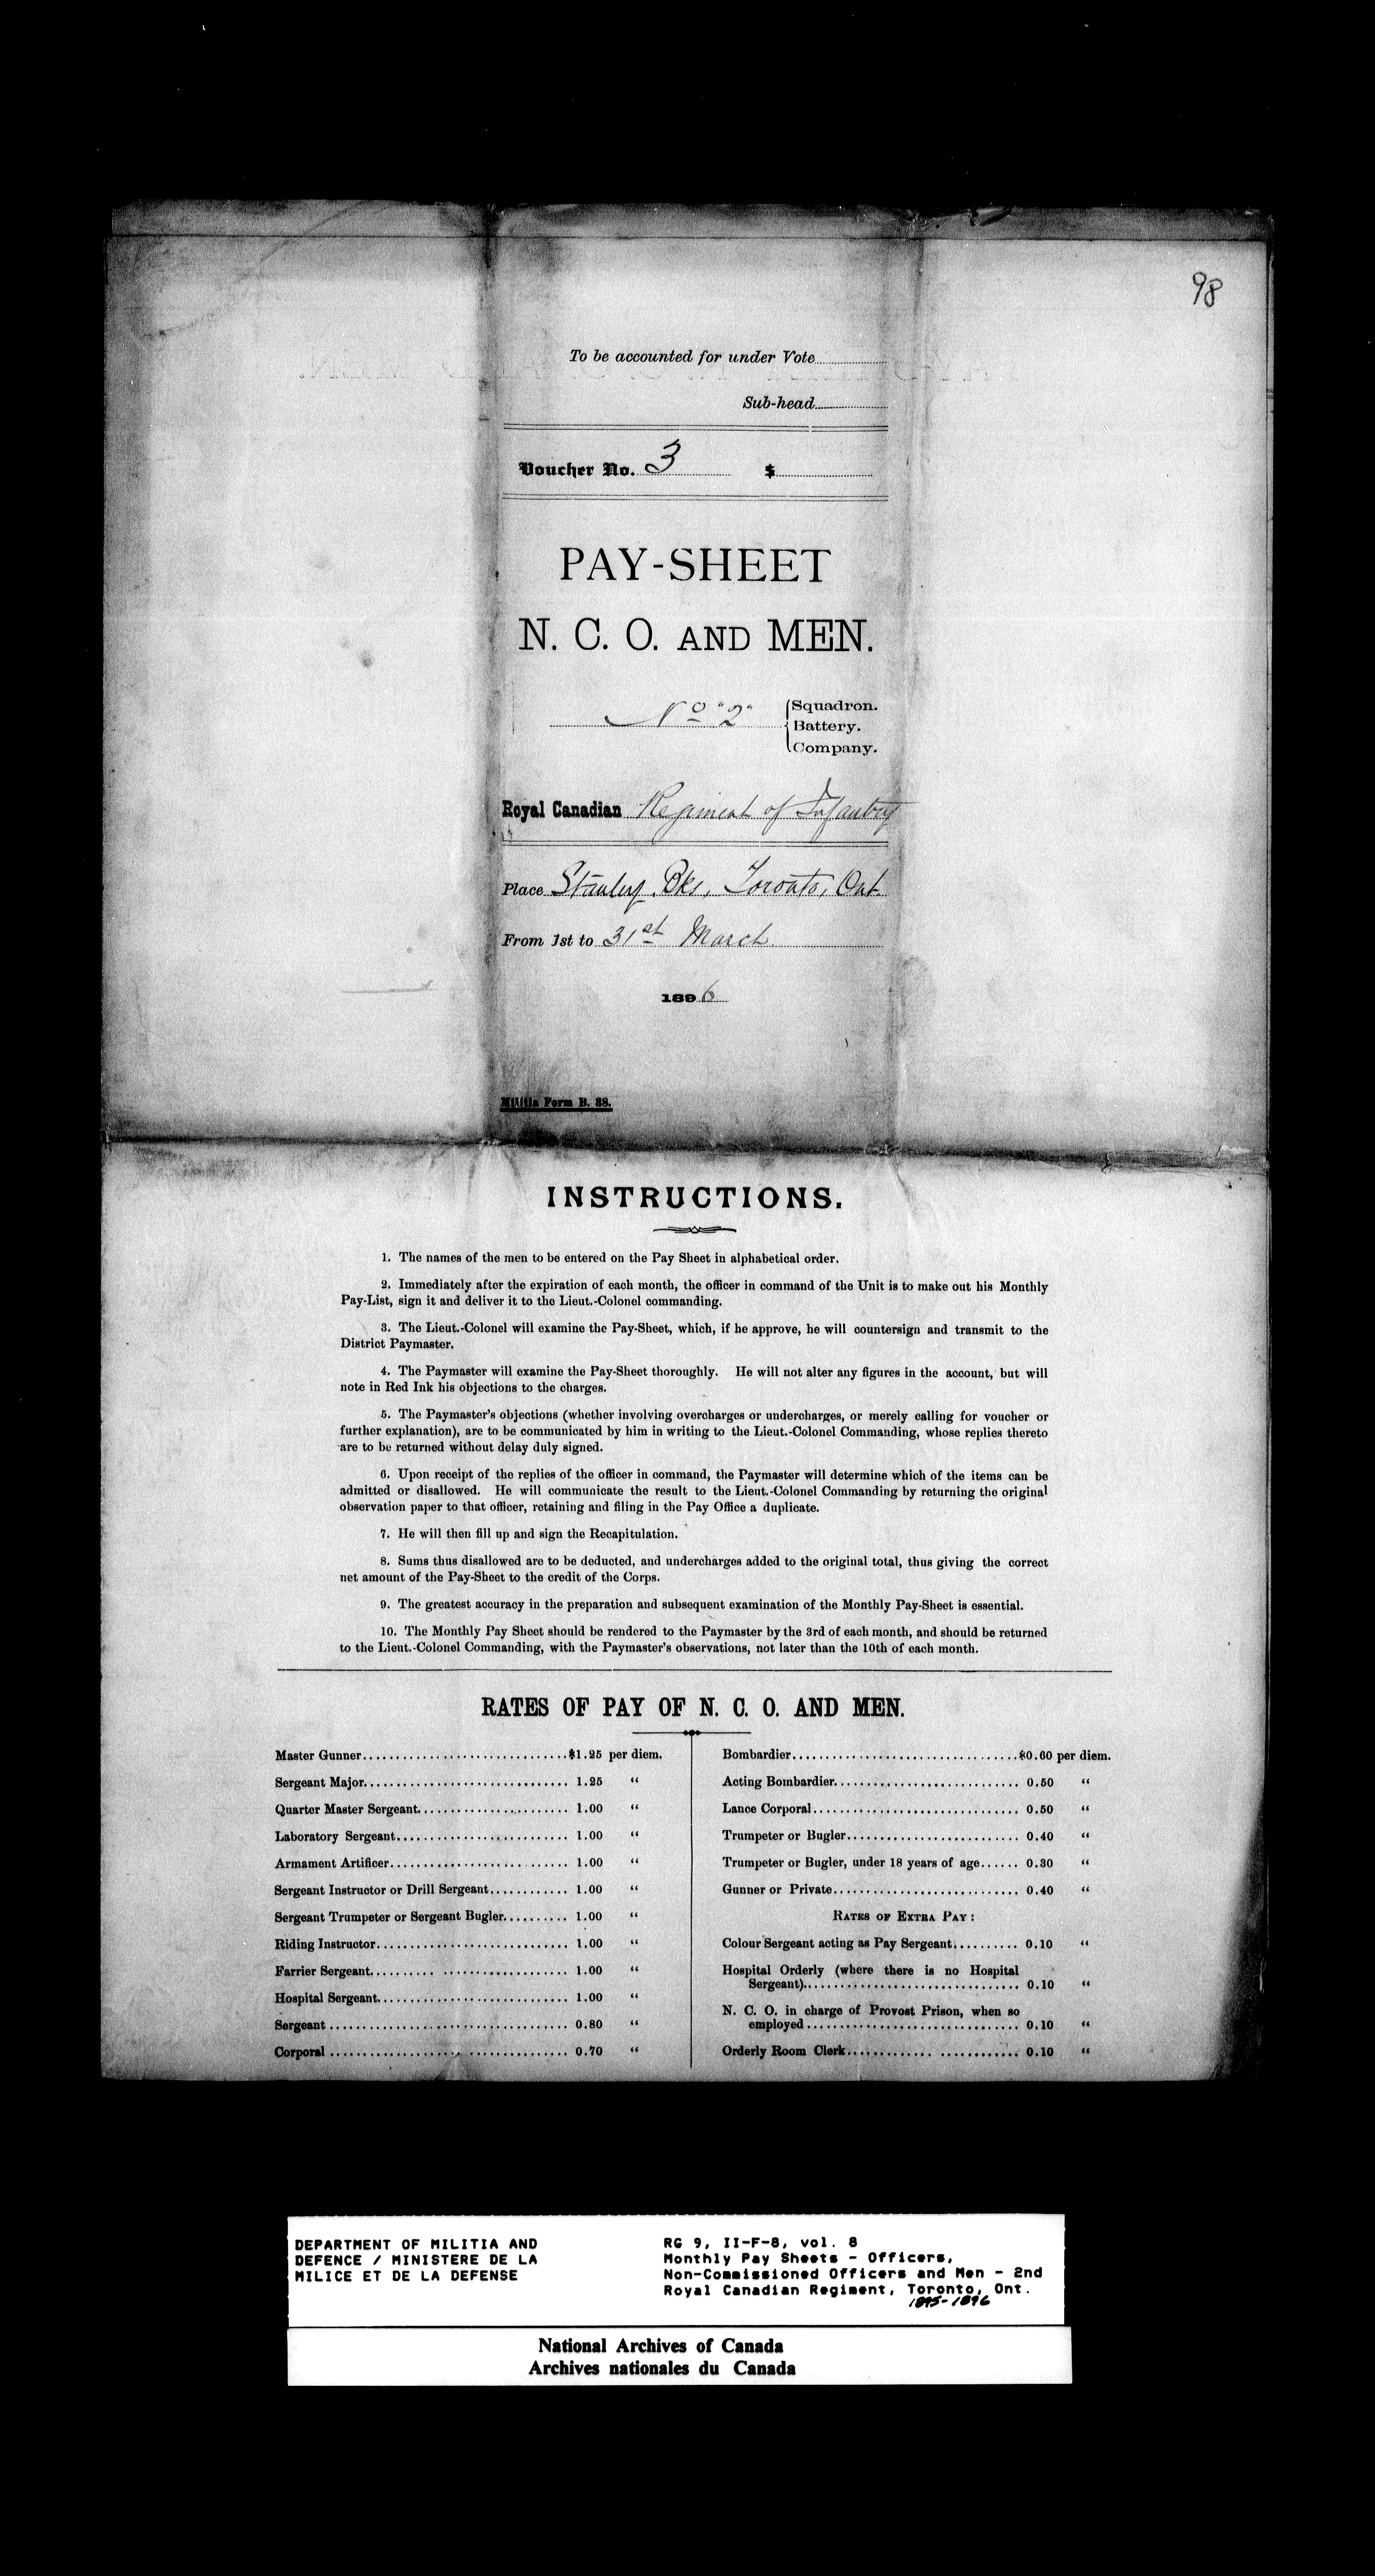 98
To be accounted for under Vote
Sub-head
Voucher No. 3 $
PAY-SHEET
N. C. O. AND MEN.
No "2"
Squadron.
Battery.
Company.
Royal Canadian Regiment of Infantry
Place Stanley Bks, Toronto, Ont.
From 1st to 31st March
1896
Militia Form B. 38.
INSTRUCTIONS.
1. The names of the men to be entered on the Pay Sheet in alphabetical order.
2. Immediately after the expiration of each month, the officer in command of the Unit is to make out his Monthly
Pay-List, sign it and deliver it to the Lieut.-Colonel commanding.
3. The Lieut.-Colonel will examine the Pay-Sheet, which, if he approve, he will countersign and transmit to the
District Paymaster.
4. The Paymaster will examine the Pay-Sheet thoroughly. He will not alter any figures in the account, but will
note in Red Ink his objections to the charges.
5. The Paymaster's objections (whether involving overcharges or undercharges, or merely calling for voucher or
further explanation), are to be communicated by him in writing to the Lieut.-Colonel Commanding, whose replies thereto
are to be returned without delay duly signed.
6. Upon receipt of the replies of the officer in command, the Paymaster will determine which of the items can be
admitted or disallowed. He will communicate the result to the Lieut.-Colonel Commanding by returning the original
observation paper to that officer, retaining and filing in the Pay Office a duplicate.
7. He will then fill up and sign the Recapitulation.
8. Sums thus disallowed are to be deducted, and undercharges added to the original total, thus giving the correct
net amount of the Pay-Sheet to the credit of the Corps.
9. The greatest accuracy in the preparation and subsequent examination of the Monthly Pay-Sheet is essential.
10. The Monthly Pay Sheet should be rendered to the Paymaster by the 3rd of each month, and should be returned
to the Lieut.-Colonel Commanding, with the Paymaster's observations, not later than the 10th of each month.
RATES OF PAY OF N. C. O. AND MEN.
Master Gunner $1.25 per diem.
Sergeant Major 1.25 "
Quarter Master Sergeant 1.00 "
Laboratory Sergeant 1.00 "
Armament Artificer 1.00 "
Sergeant Instructor or Drill Sergeant 1.00 "
Sergeant Trumpeter or Sergeant Bugler 1.00 "
Riding Instructor 1.00 "
Farrier Sergeant 1.00 "
Hospital Sergeant 1.00 "
Sergeant 0.80 "
Corporal 0.70 "
Bombardier $0.60 per diem.
Acting Bombardier 0.50 "
Lance Corporal 0.50 "
Trumpeter or Bugler 0.40 "
Trumpeter or Bugler, under 18 years of age 0.30 "
Gunner or Private 0.40 "
RATES OF EXTRA PAY:
Colour Sergeant acting as Pay Sergeant 0.10 "
Hospital Orderly (where there is no Hospital
Sergeant) 0.10 "
N. C. O. in charge of Provost Prison, when so
employed 0.10 "
Orderly Room Clerk 0.10 "
DEPARTMENT OF MILITIA AND
DEFENCE / MINISTERE DE LA
MILICE ET DE LA DEFENSE
RG 9, II-F-8, vol. 8
Monthly Pay Sheets - Officers,
Non-Commissioned Officers and Men - 2nd
Royal Canadian Regiment, Toronto, Ont.
1895-1896
National Archives of Canada
Archives nationales du Canada